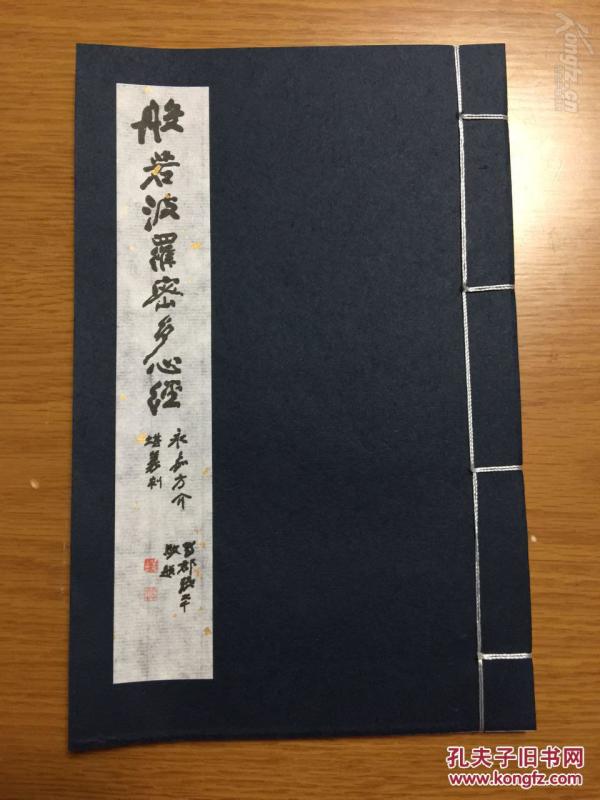 般若波羅密多心經
永嘉方介
堪篆刻
敬題
Kongfz.cn
孔夫子旧书网
www.kongfz.com